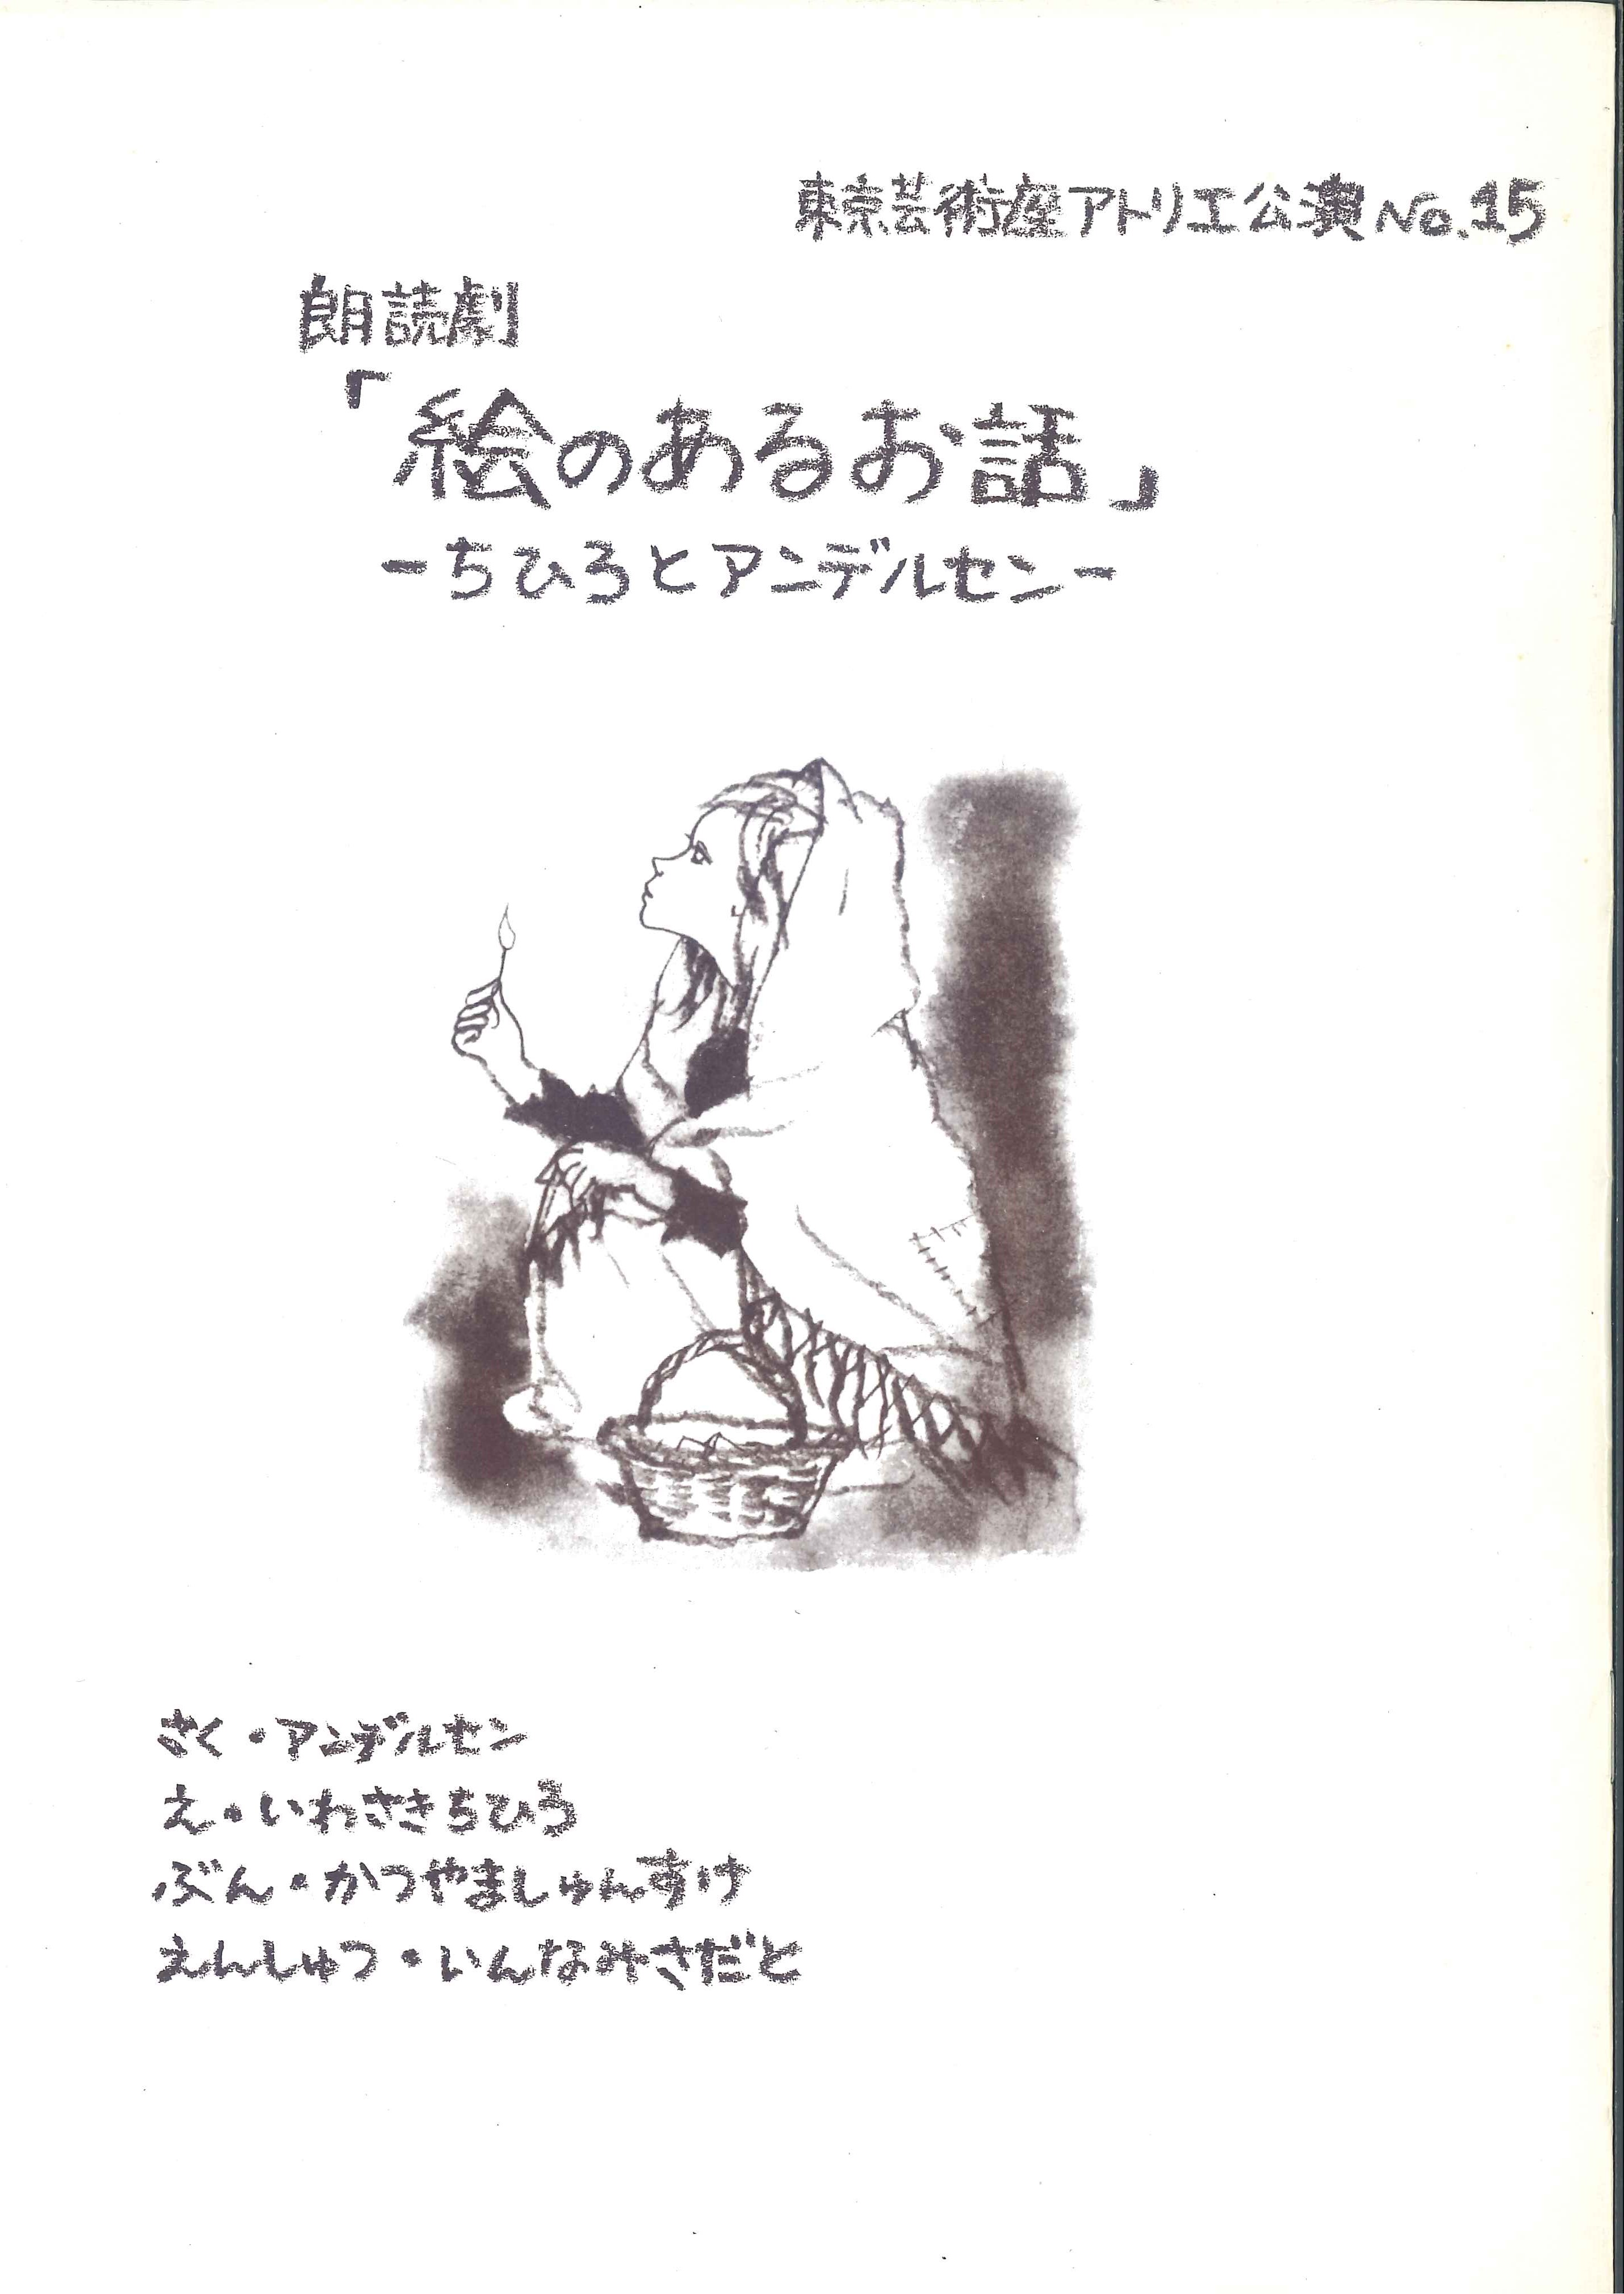 東京芸術座アトリエ公演No.15
朗読劇
「絵のあるお話」
－ちひろとアンデルセン－
さく・アンデルセン
え・いわさきちひろ
ぶん・かつやましゅんすけ
えんしゅつ・いんなみさだと